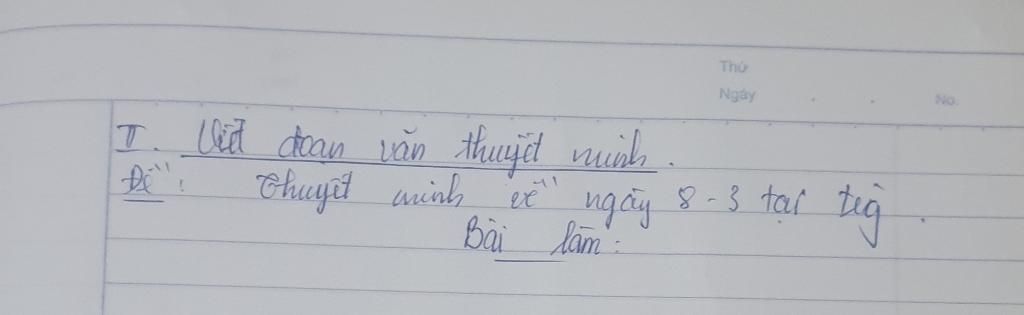 Thứ
Ngày . . No.
II. Viết đoạn văn thuyết minh.
Đề: Thuyết minh về ngày 8-3 tại
Bài làm: